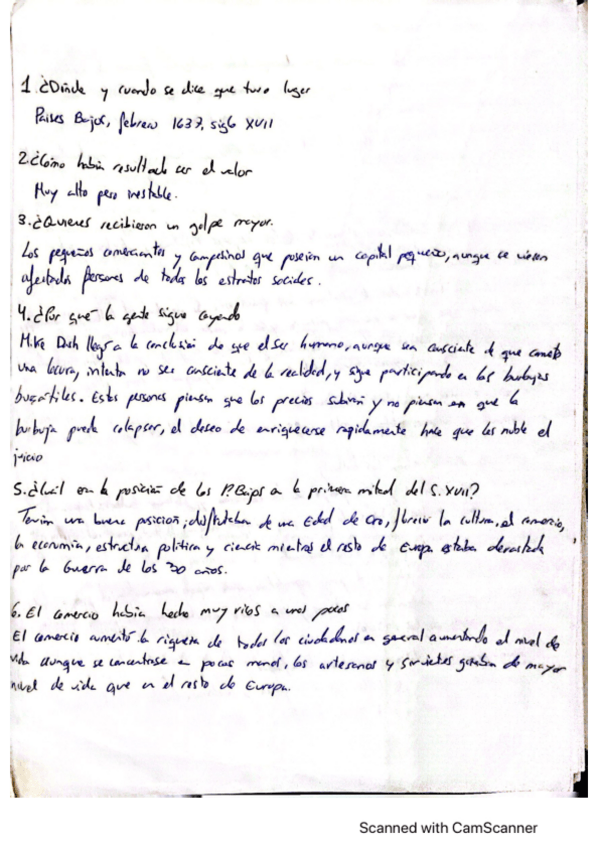 1. ¿Dónde y cuando se dice que tuvo lugar
Países Bajos, febrero 1637, siglo XVII
2. ¿Cómo había resultado ser el valor
Muy alto pero inestable.
3. ¿Quienes recibieron un golpe mayor.
Los pequeños comerciantes y campesinos que poseían un capital pequeño, aunque se vieron
afectados personas de todos los estratos sociales.
4. ¿Por qué la gente sigue cayendo
Mike Dash llega a la conclusión de que el ser humano, aunque sea consciente de que comete
una locura, intenta no ser consciente de la realidad, y sigue participando en las burbujas
bursátiles. Estas personas piensan que los precios subirán y no piensan en que la
burbuja puede colapsar, el deseo de enriquecerse rapidamente hace que les nuble el
juicio
5. ¿Cuál era la posición de los P. Bajos en la primera mitad del S. XVII?
Tenían una buena posición, disfrutaban de una Edad de Oro, floreció la cultura, el comercio,
la economía, estructura política y ciencia mientras el resto de Europa estaba devastada
por la Guerra de los 30 años.
6. El comercio había hecho muy ricos a unos pocos
El comercio aumentó la riqueza de todos los ciudadanos en general aumentando el nivel de
vida aunque se concentrase en pocas manos, los artesanos y sirvientes gozaban de mayor
nivel de vida que en el resto de Europa.
Scanned with CamScanner